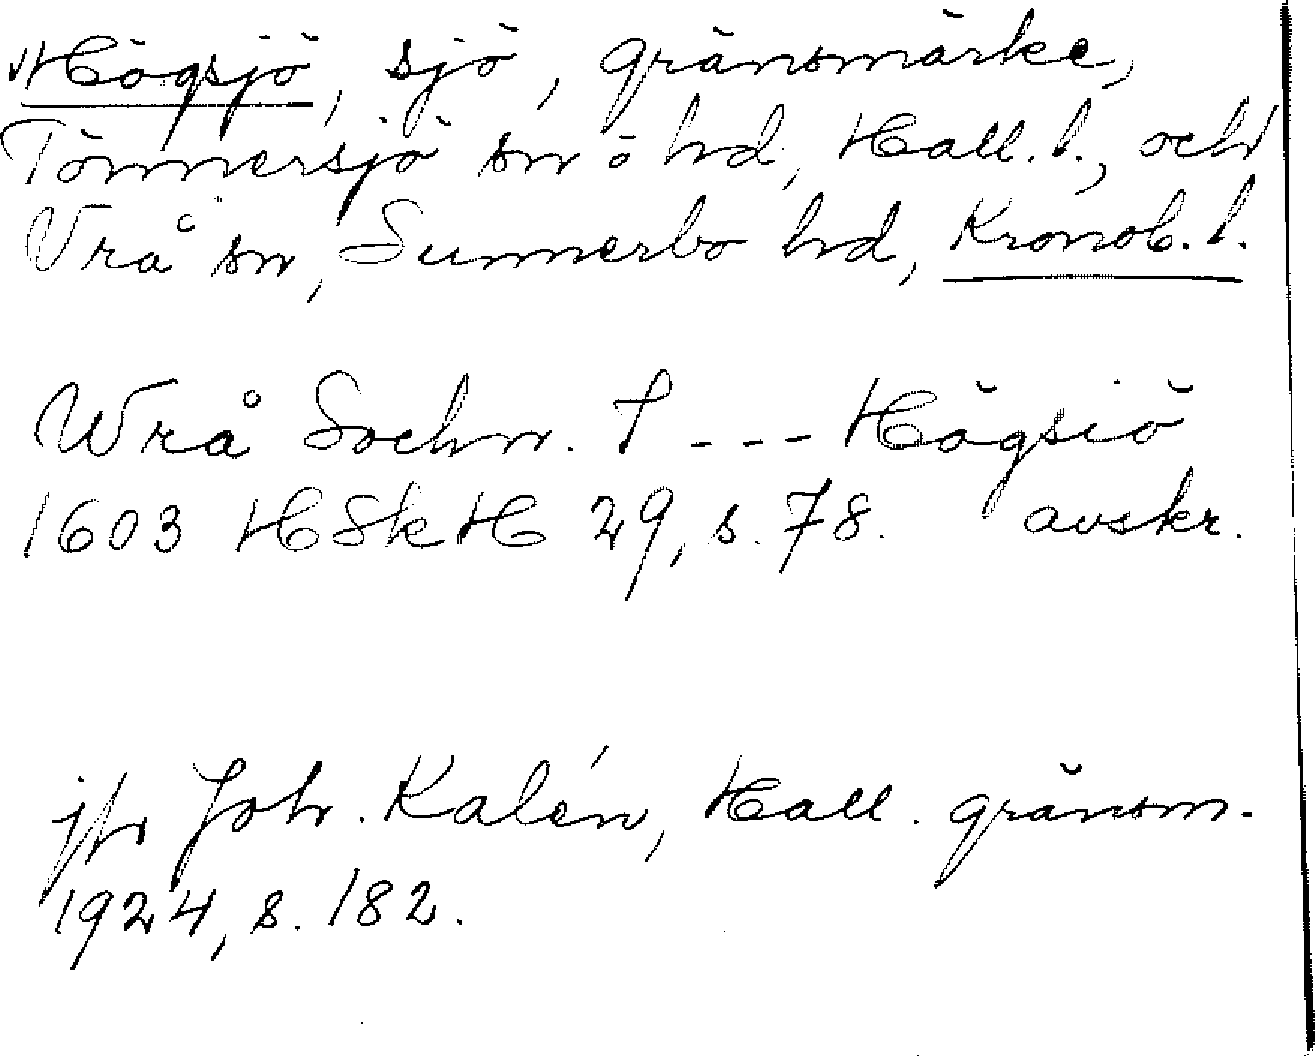 Högsjö, sjö, gränsmärke,
Tönnersjö sn o hd, Hall. l., och
Vrå sn, Sunnerbo hd, Kronob. l.
Wrå Sochn. I --- Högsiö
1603 HSkH 29, s. 78. avskr.
jfr Joh. Kalén, Hall. gränsm.
1924, s. 182.